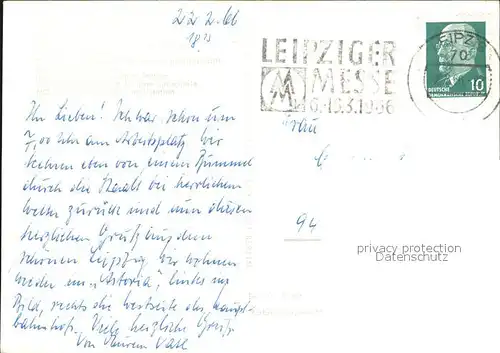 22 2. 66
18 h
LEIPZIGER
MESSE
6.-15.3.1966
LEIPZIG
70
10
DEUTSCHE
DEMOKRATISCHE REPUBLIK
Ihr Lieben! Ich war schon um
7.00 Uhr am Arbeitsplatz. Wir
kehren eben von einem Bummel
durch die Stadt bei herrlichem
Wetter zurück und nun diesen
herzlichen Gruß aus dem
schönen Leipzig. Wir wohnen
wieder im "Astoria", links im
Bild, rechts die Westseite des Haupt-
bahnhofs. Viele herzliche Grüße
Von Eurem
Frau
94
privacy protection
Datenschutz